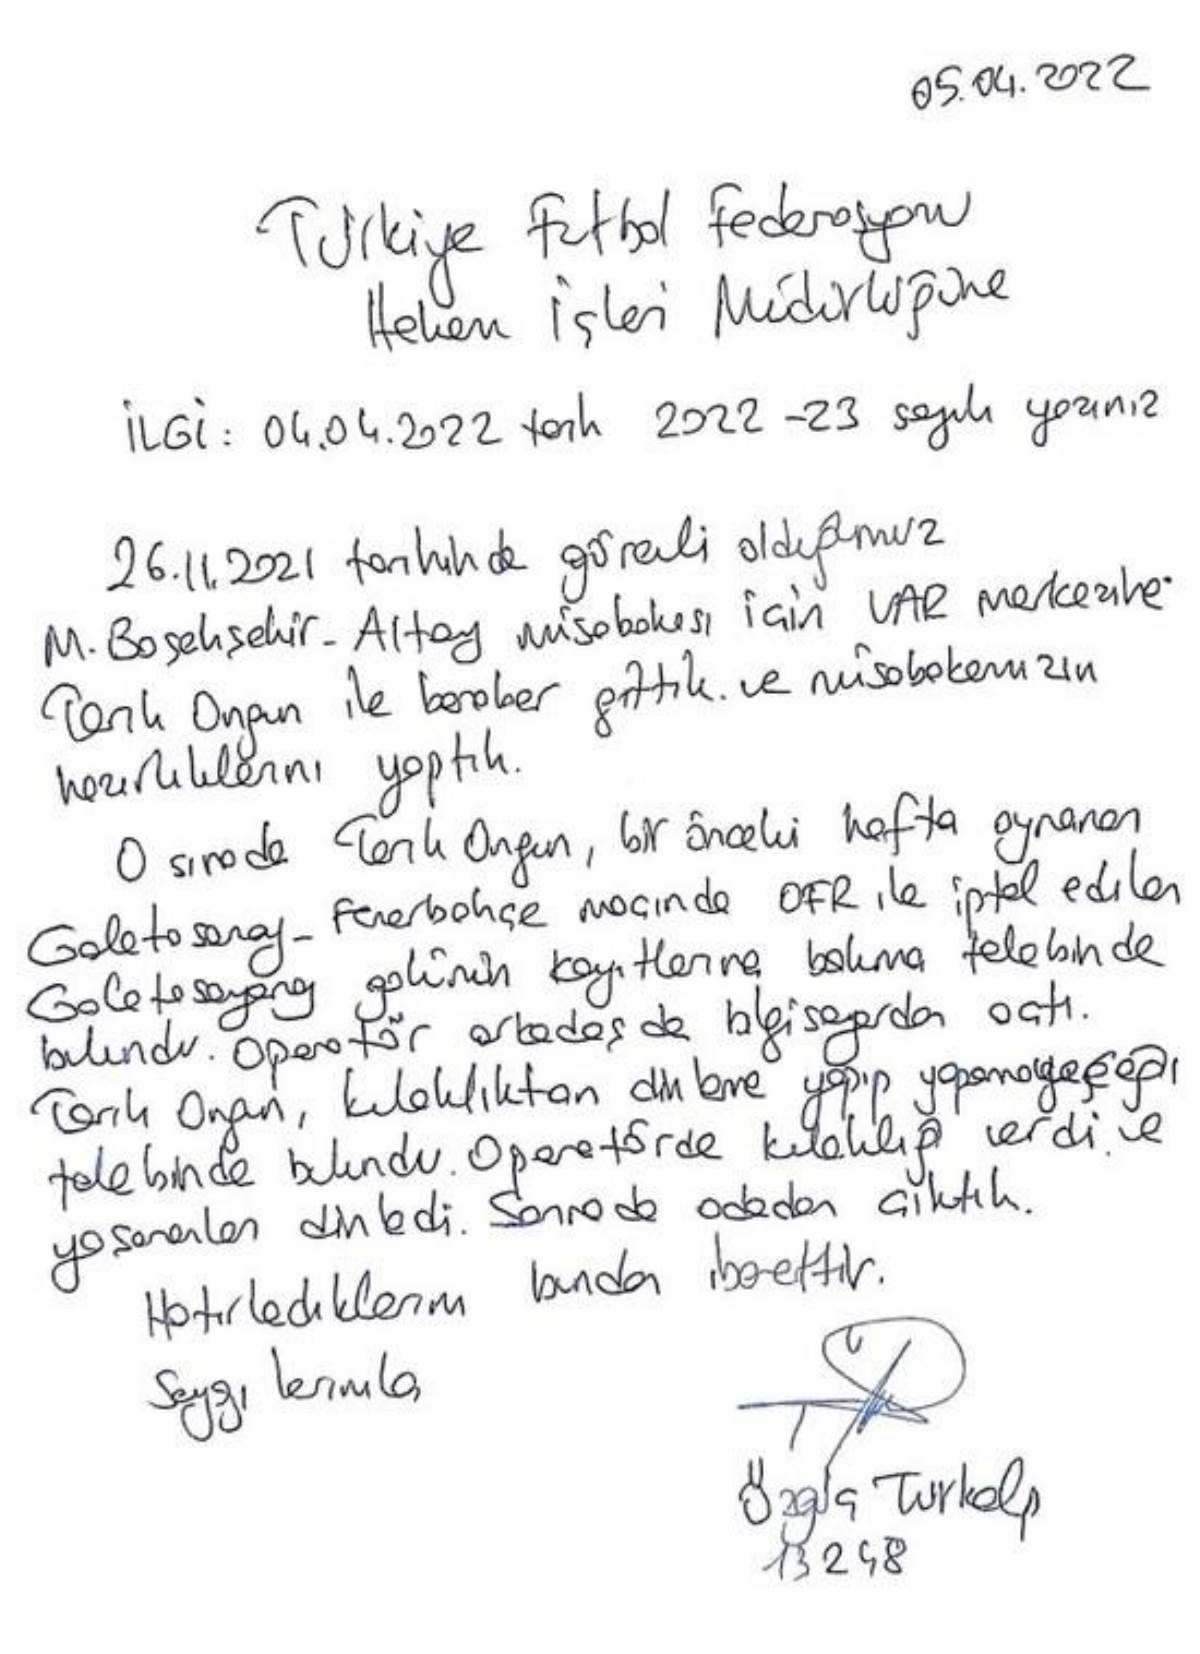 05.04.2022
Türkiye Futbol Federasyonu
Hakem İşleri Müdürlüğüne
İLGİ: 04.04.2022 tarih 2022-23 sayılı yazınız
26.11.2021 tarihinde görevli olduğumuz
M. Başakşehir - Altay müsabakası için VAR merkezine
Tarık Ongun ile beraber gittik ve müsabakamızın
hazırlıklarını yaptık.
O sırada Tarık Ongun, bir önceki hafta oynanan
Galatasaray - Fenerbahçe maçında OFR ile iptal edilen
Galatasaray golünün kayıtlarına bakma talebinde
bulundu. Operatör arkadaş da bilgisayardan açtı.
Tarık Ongun, kulaklıktan dinleme yapıp yapamayacağı
talebinde bulundu. Operatörde kulaklığı verdi ve
yaşananları dinledi. Sonra da odadan çıktık.
Hatırladıklarım bundan ibarettir.
Saygılarımla
Özgüç Türkalp
13248